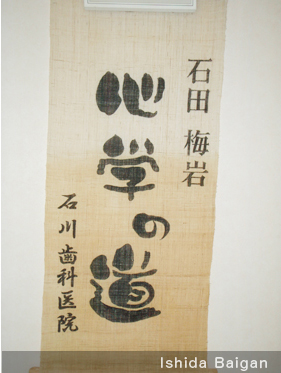 石田 梅岩
心学の道
石川歯科医院
Ishida Baigan